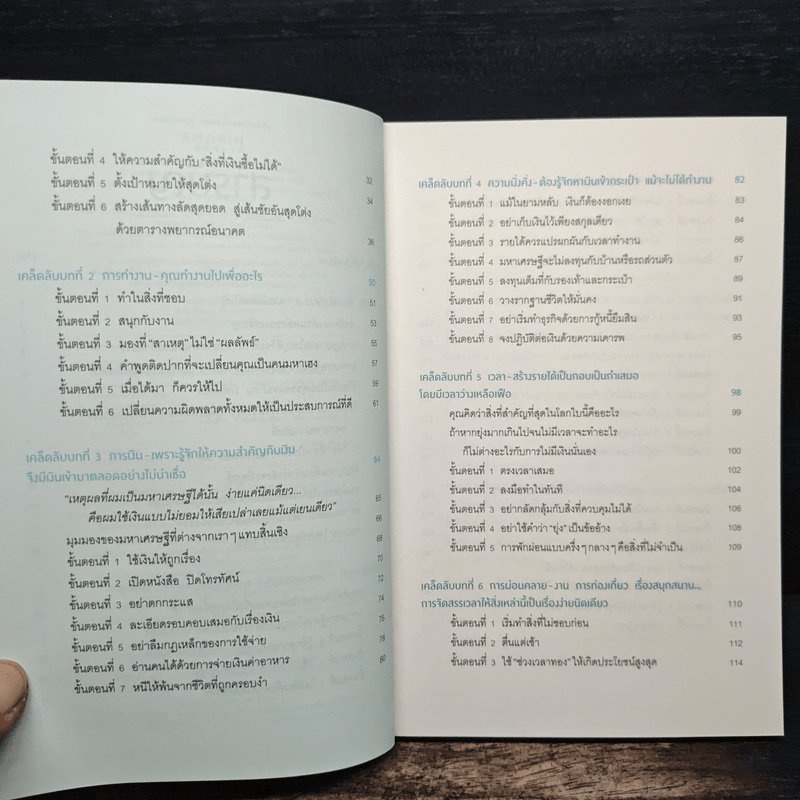 ขั้นตอนที่ 4 ให้ความสำคัญกับ "สิ่งที่เงินซื้อไม่ได้" 32
ขั้นตอนที่ 5 ตั้งเป้าหมายให้สุดโต่ง 34
ขั้นตอนที่ 6 สร้างเส้นทางลัดสุดยอด สู่เส้นชัยอันสุดโต่ง
ด้วยตารางพยากรณ์อนาคต 36
เคล็ดลับบทที่ 2 การทำงาน-คุณทำงานไปเพื่ออะไร 50
ขั้นตอนที่ 1 ทำในสิ่งที่ชอบ 51
ขั้นตอนที่ 2 สนุกกับงาน 53
ขั้นตอนที่ 3 มองที่ "สาเหตุ" ไม่ใช่ "ผลลัพธ์" 55
ขั้นตอนที่ 4 คำพูดติดปากที่จะเปลี่ยนคุณเป็นคนมหาเฮง 57
ขั้นตอนที่ 5 เมื่อได้มา ก็ควรให้ไป 59
ขั้นตอนที่ 6 เปลี่ยนความผิดพลาดทั้งหมดให้เป็นประสบการณ์ที่ดี 61
เคล็ดลับบทที่ 3 การเงิน-เพราะรู้จักให้ความสำคัญกับเงิน
จึงมีเงินเข้ามาตลอดอย่างไม่น่าเชื่อ 64
"เหตุผลที่ผมเป็นมหาเศรษฐีได้นั้น ง่ายแค่นิดเดียว...
คือผมใช้เงินแบบไม่ยอมให้เสียเปล่าเลยแม้แต่เยนเดียว" 65
มุมมองของมหาเศรษฐีที่ต่างจากเราๆ แทบสิ้นเชิง 66
ขั้นตอนที่ 1 ใช้เงินให้ถูกเรื่อง 68
ขั้นตอนที่ 2 เปิดหนังสือ ปิดโทรทัศน์ 70
ขั้นตอนที่ 3 อย่าตกกระแส 72
ขั้นตอนที่ 4 ละเอียดรอบคอบเสมอกับเรื่องเงิน 74
ขั้นตอนที่ 5 อย่าลืมกฎเหล็กของการใช้จ่าย 76
ขั้นตอนที่ 6 อ่านคนได้ด้วยการจ่ายเงินค่าอาหาร 78
ขั้นตอนที่ 7 หนีให้พ้นจากชีวิตที่ถูกครอบงำ 80
เคล็ดลับบทที่ 4 ความมั่งคั่ง-ต้องรู้จักหาเงินเข้ากระเป๋า แม้จะไม่ได้ทำงาน 82
ขั้นตอนที่ 1 แม้ในยามหลับ เงินก็ต้องงอกเงย 83
ขั้นตอนที่ 2 อย่าเก็บเงินไว้เพียงสกุลเดียว 84
ขั้นตอนที่ 3 รายได้ควรแปรผกผันกับเวลาทำงาน 86
ขั้นตอนที่ 4 มหาเศรษฐีจะไม่ลงทุนกับบ้านหรือรถส่วนตัว 87
ขั้นตอนที่ 5 ลงทุนเต็มที่กับรองเท้าและกระเป๋า 89
ขั้นตอนที่ 6 วางรากฐานชีวิตให้มั่นคง 91
ขั้นตอนที่ 7 อย่าเริ่มทำธุรกิจด้วยการกู้หนี้ยืมสิน 93
ขั้นตอนที่ 8 จงปฏิบัติต่อเงินด้วยความเคารพ 95
เคล็ดลับบทที่ 5 เวลา-สร้างรายได้เป็นกอบเป็นกำเสมอ
โดยมีเวลาว่างเหลือเฟือ 98
คุณคิดว่าสิ่งที่สำคัญที่สุดในโลกใบนี้คืออะไร 99
ถ้าหากยุ่งมากเกินไปจนไม่มีเวลาจะทำอะไร
ก็ไม่ต่างอะไรกับการไม่มีเงินนั่นเอง 100
ขั้นตอนที่ 1 ตรงเวลาเสมอ 102
ขั้นตอนที่ 2 ลงมือทำในทันที 104
ขั้นตอนที่ 3 อย่ากลัดกลุ้มกับสิ่งที่ควบคุมไม่ได้ 106
ขั้นตอนที่ 4 อย่าใช้คำว่า "ยุ่ง" เป็นข้ออ้าง 108
ขั้นตอนที่ 5 การพักผ่อนแบบครึ่งๆ กลางๆ คือสิ่งที่ไม่จำเป็น 109
เคล็ดลับบทที่ 6 การผ่อนคลาย-งาน การท่องเที่ยว เรื่องสนุกสนาน...
การจัดสรรเวลาให้สิ่งเหล่านี้เป็นเรื่องง่ายนิดเดียว 110
ขั้นตอนที่ 1 เริ่มทำสิ่งที่ไม่ชอบก่อน 111
ขั้นตอนที่ 2 ตื่นแต่เช้า 112
ขั้นตอนที่ 3 ใช้ "ช่วงเวลาทอง" ให้เกิดประโยชน์สูงสุด 114